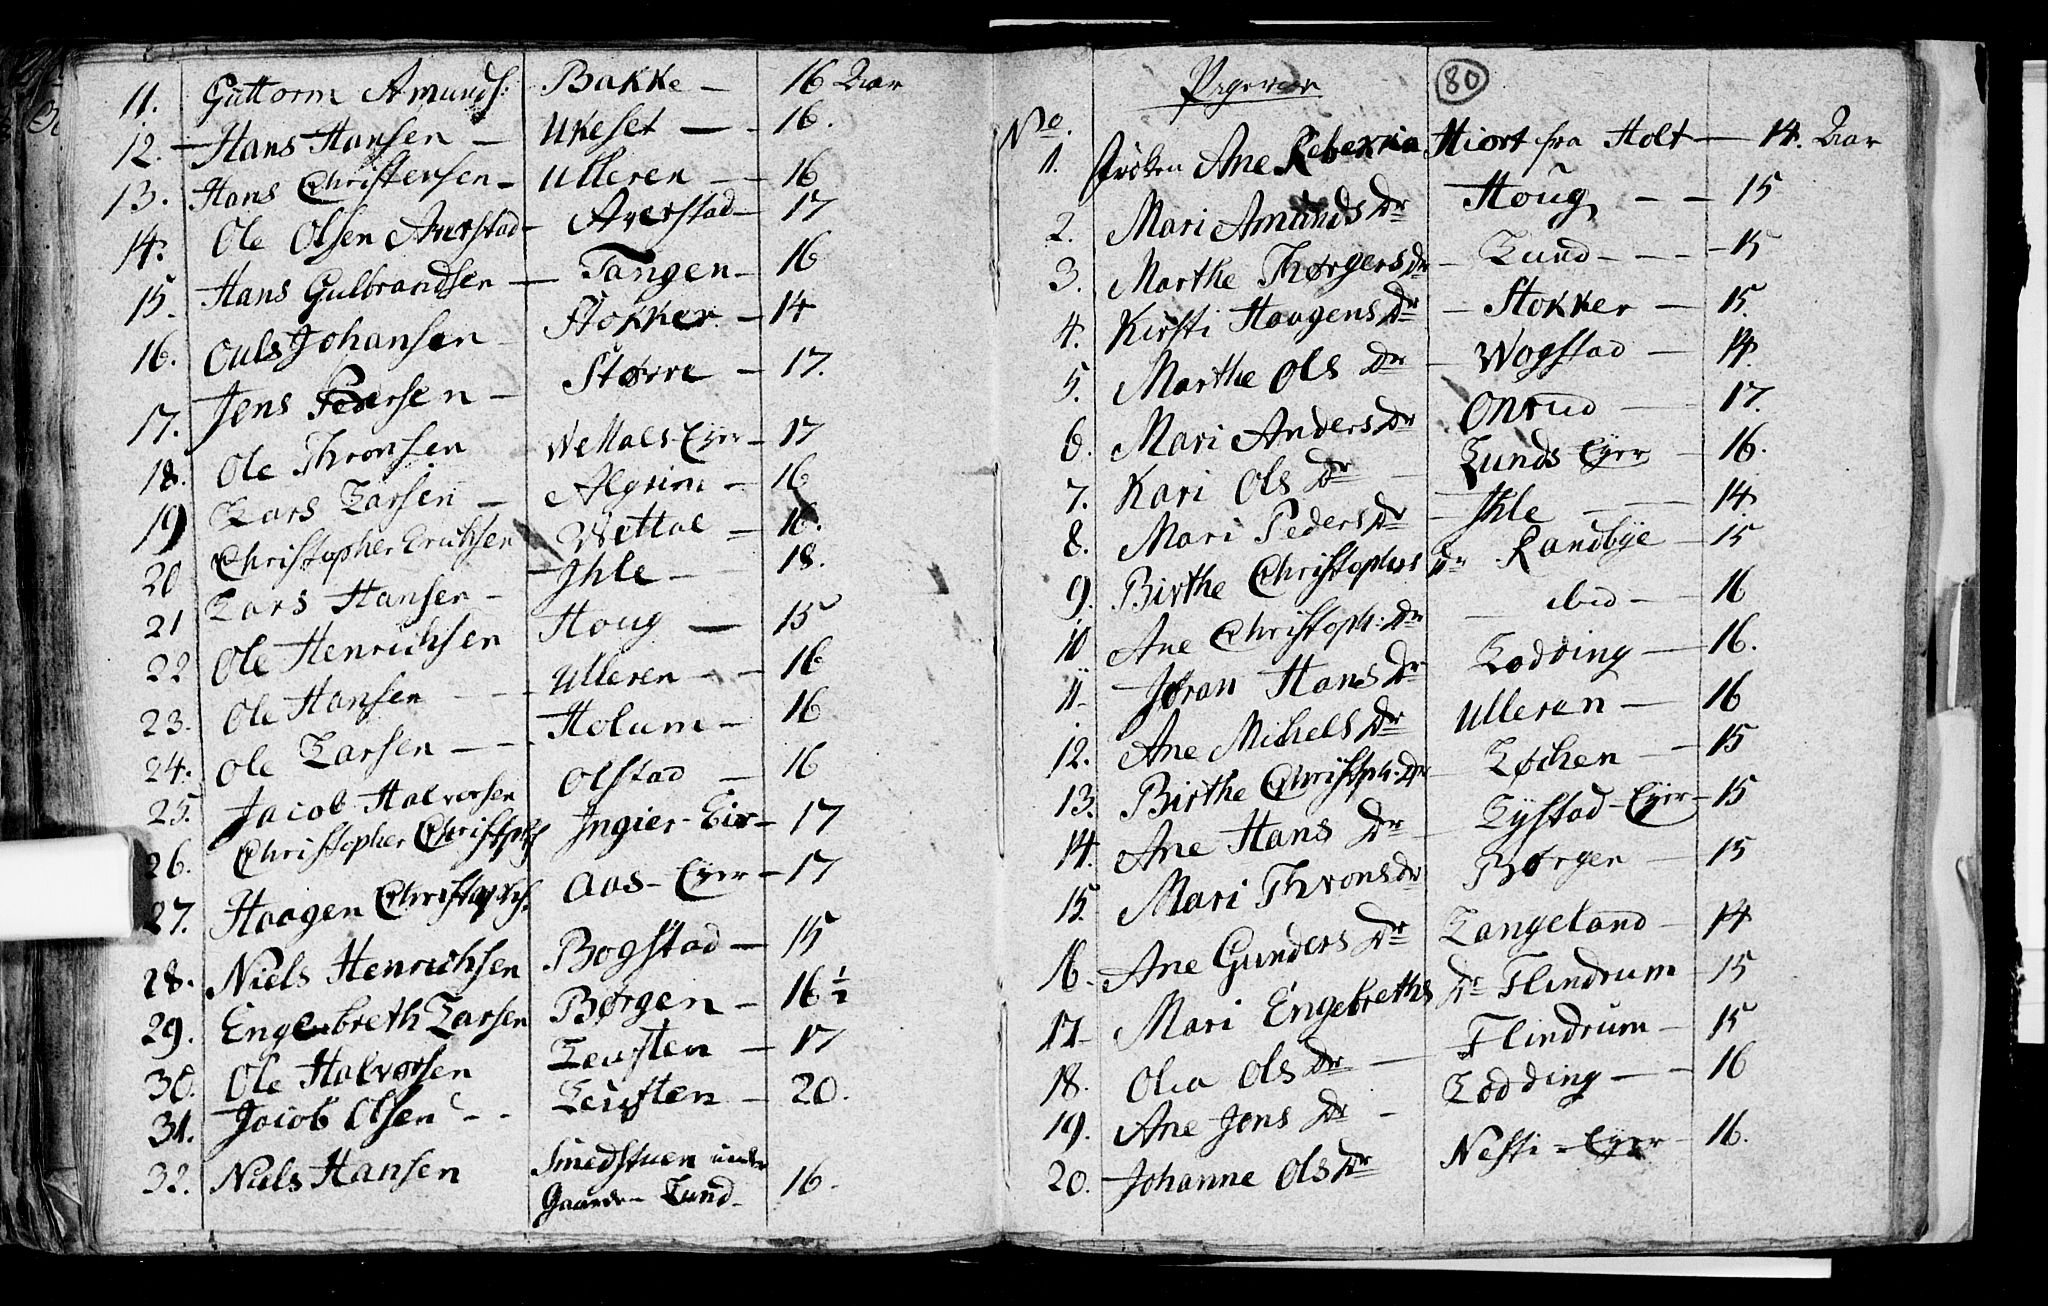 11. Guttorm Amunds: Bakke — 16 Aar
12. Hans Hansen — Ukeset — 16.
13. Hans Christensen — Ulleren — 16
14. Ole Olsen Averstad — Averstad — 17
15. Hans Gulbrandsen — Tangen — 16
16. Ouls Johansen — Stokker — 14
17. Jens Pedersen — Større — 17.
18. Ole Thronsen Wettals Eyer — 17
19 Lars Larsen — Algrim — 16
20 Christopher Erichsen Wettal — 16.
21 Lars Hansen — Ihle — 18.
22 Ole Henrichsen Houg — 15
23. Ole Hansen — Ulleren — 16
24. Ole Larsen — Holum — 16
25. Jacob Halvorsen Olstad — 16
26. Christopher Christophs Ingier-Eir — 17
27. Haagen Christophs: Aas-Eyer — 17
28. Niels Henrichsen Bogstad — 15
29. Engelbreth Larsen Børgen — 16 1/2
30. Ole Halvorsen Leuften — 17
31. Jacob Olsen — Leuften — 20.
32. Niels Hansen Smedstuen under
Gaarden Lund — 16.
80
Pigerne
No.
1. Frøken Ane Rebekka Hiort fra Holt — 14. Aar
2. Mari Amunds Dr Houg — 15
3. Marthe Thørgers Dr — Lund — 15
4. Kirsti Haagens Dr — Stokker — 15.
5. Marthe Ols Dr — Wogstad — 14.
6. Mari Anders Dr Onrud — 17.
7. Kari Ols Dr — Lunds Eyer — 16.
8. Mari Peders Dr — Ihle — 14
9. Birthe Christophers Dr Randbye — 15
10 Ane Christoph: Dr — ibid — 16
11 Jøran Hans Dr Lodding — 16.
12. Ane Michels Dr Ulleren — 16
13. Birthe Christoph: Dr Løchen — 15
14. Ane Hans Dr — Lystad-Eyer — 15
15. Mari Throns Dr Børgen — 15
16. Ane Gunders Dr Langeland — 14
17. Mari Engebreths Dr Flindrum — 15
18. Olia Ols Dr — Flindrum — 15
19. Ane Jens Dr — Lodding — 16
20. Johanne Ols Dr Nesti-Eyer — 16.